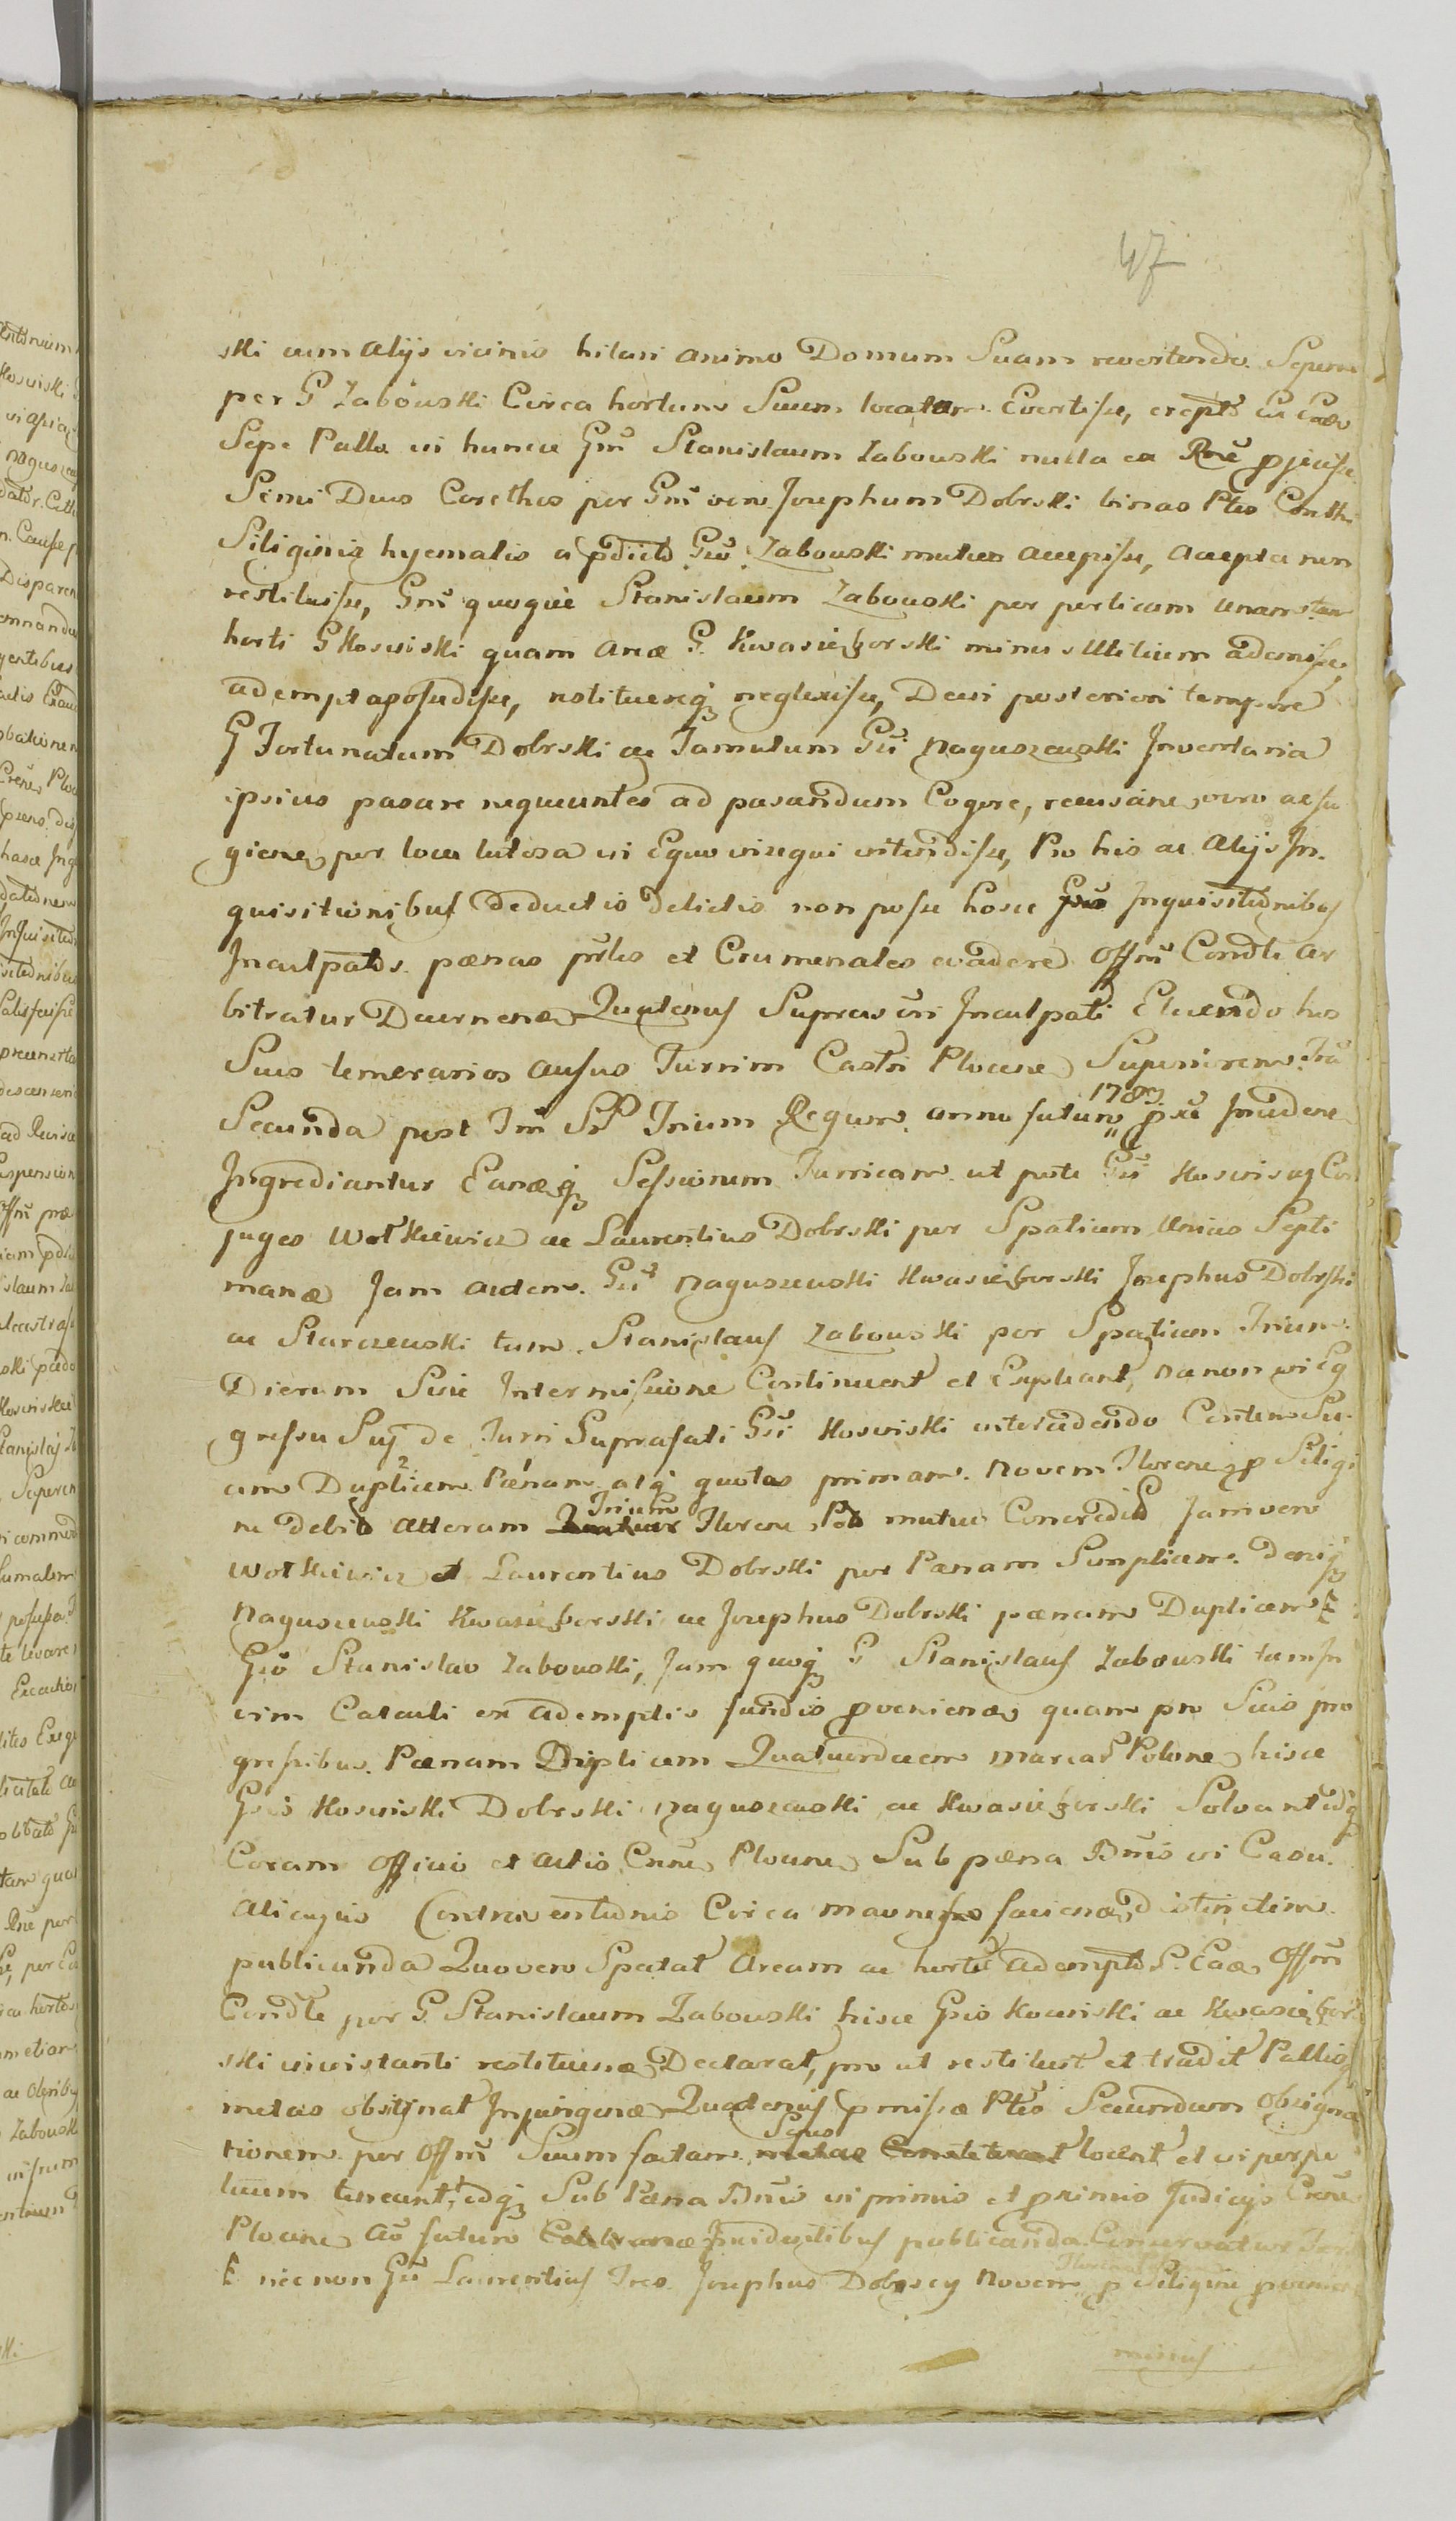 47
ski cum alijs vicinis hilari animo Domum Suam revertendo. Sepem
per G Zabouski Circa hortum Suum locatam Evertisse, erepto Ex Eadem
Sepe Pallo in hunce Gnm Stanislaum Zabouski nulla ea Rne pjecisse
Semi Duos Corethos per Gnm vero Josephum Dobrski binas Ptes Corethi
Siliginis hyemalis a pdicto Gso Zabouski mutuo accepisse, accepta non
restituisse, Gnm quoque Stanislaum Zabouski per perticam unam tam
horti G Koswiski quam areæ G. Kwasieborski minus Utilium ademisse,
adempta possedisse, restituereq neglexisse, Deni posteriori tempore
G Fortunatum Dobrski ac Famulum Gsi Naguszewski Inventaria
ipsius pascere nequeuntes ad pascendum Cogere, recusane vero ac fu
giene per loca lutosa in Equo insequi intendisse, Pro his ac alijs In.
quisitionibus Deductis Delictis non posse hosce Gsos Inquisitionibus
Inculpatos pænas prles et Crumenales evadere Offm Condle ar
bitratur Decernenæ Quatenus Supracsi Inculpati Eluendo hos
Suos temerarios ausus Turrim Castri Plocens Superiorem. Fra
Secunda post Fm SS Trium Regum anno futuro 1789 pxe Incidene
Ingrediantur Eanæq Sessionem Turricam ut pote Gsi Koswiscy Con
juges Wołkiewicz ac Laurentius Dobrski per Spatium Unius Septi
manæ Jam autem Gsi Naguszewski Kwasieborski Josephus Dobrski
ac Starczewski tum Stanislaus Zabouski per Spatium Trium
Dierum Sine Intermissione Continuent et Expleant, necnon in Eg
gressu Suj de Turri Suprafati Gsi Koswiski intercedendo Centum Su
am Duplicem Pænam atq quotas primam Novem Florenq p Siligi
ne debito alteram Quatuor Trium Florene Pol mutuo Concredito Jam vero
Wołkiewicz et Laurentius Dobrski per Pænam Simplicem. Deniq
Naguszewski Kwasieborski ac Josephus Dobrski pænam Duplicem
Gso Stanislao Zabouski, Jam quoq G Stanislaus Zabouski tam In
vim Calculi ex ademptis fundis pvenienæ quam pro Suis pro
gressibus Pænam Triplicem Quatuordecem Marcar Polone hisce
Gsis Koswiski Dobrski Naguszewski ac Kwasieborski Solvant idq
Coram Officio et actis Crne Plocens Sub pæna Bnis in Casu
alicujus Contraventionis Circa præmissa facienæ, distinctim
publicanda Quovero Spectat aream ac hortu ademptos S. Eæ Offm
Condle per G Stanislaum Zabouski hisce Gsis Koswiski ac Kwasiebor
ski in instanti restituenæ Declarat, pro ut restituit et tradit Palliq
metas obsignat Injungenæ Quatenus pmissæ Ptes Secundum Obsigna
tionem per Offm Suum factam Sepes locent et in perpe
tuum teneant, idq Sub Pæna Bnis in primis et pximis Judicijs Crne
Plocens ao futuro Incidentibus publicanda Conservatur
necnon Gsi Laurentius Josephus Dobrscy Novem Florenos p Siligine
minus